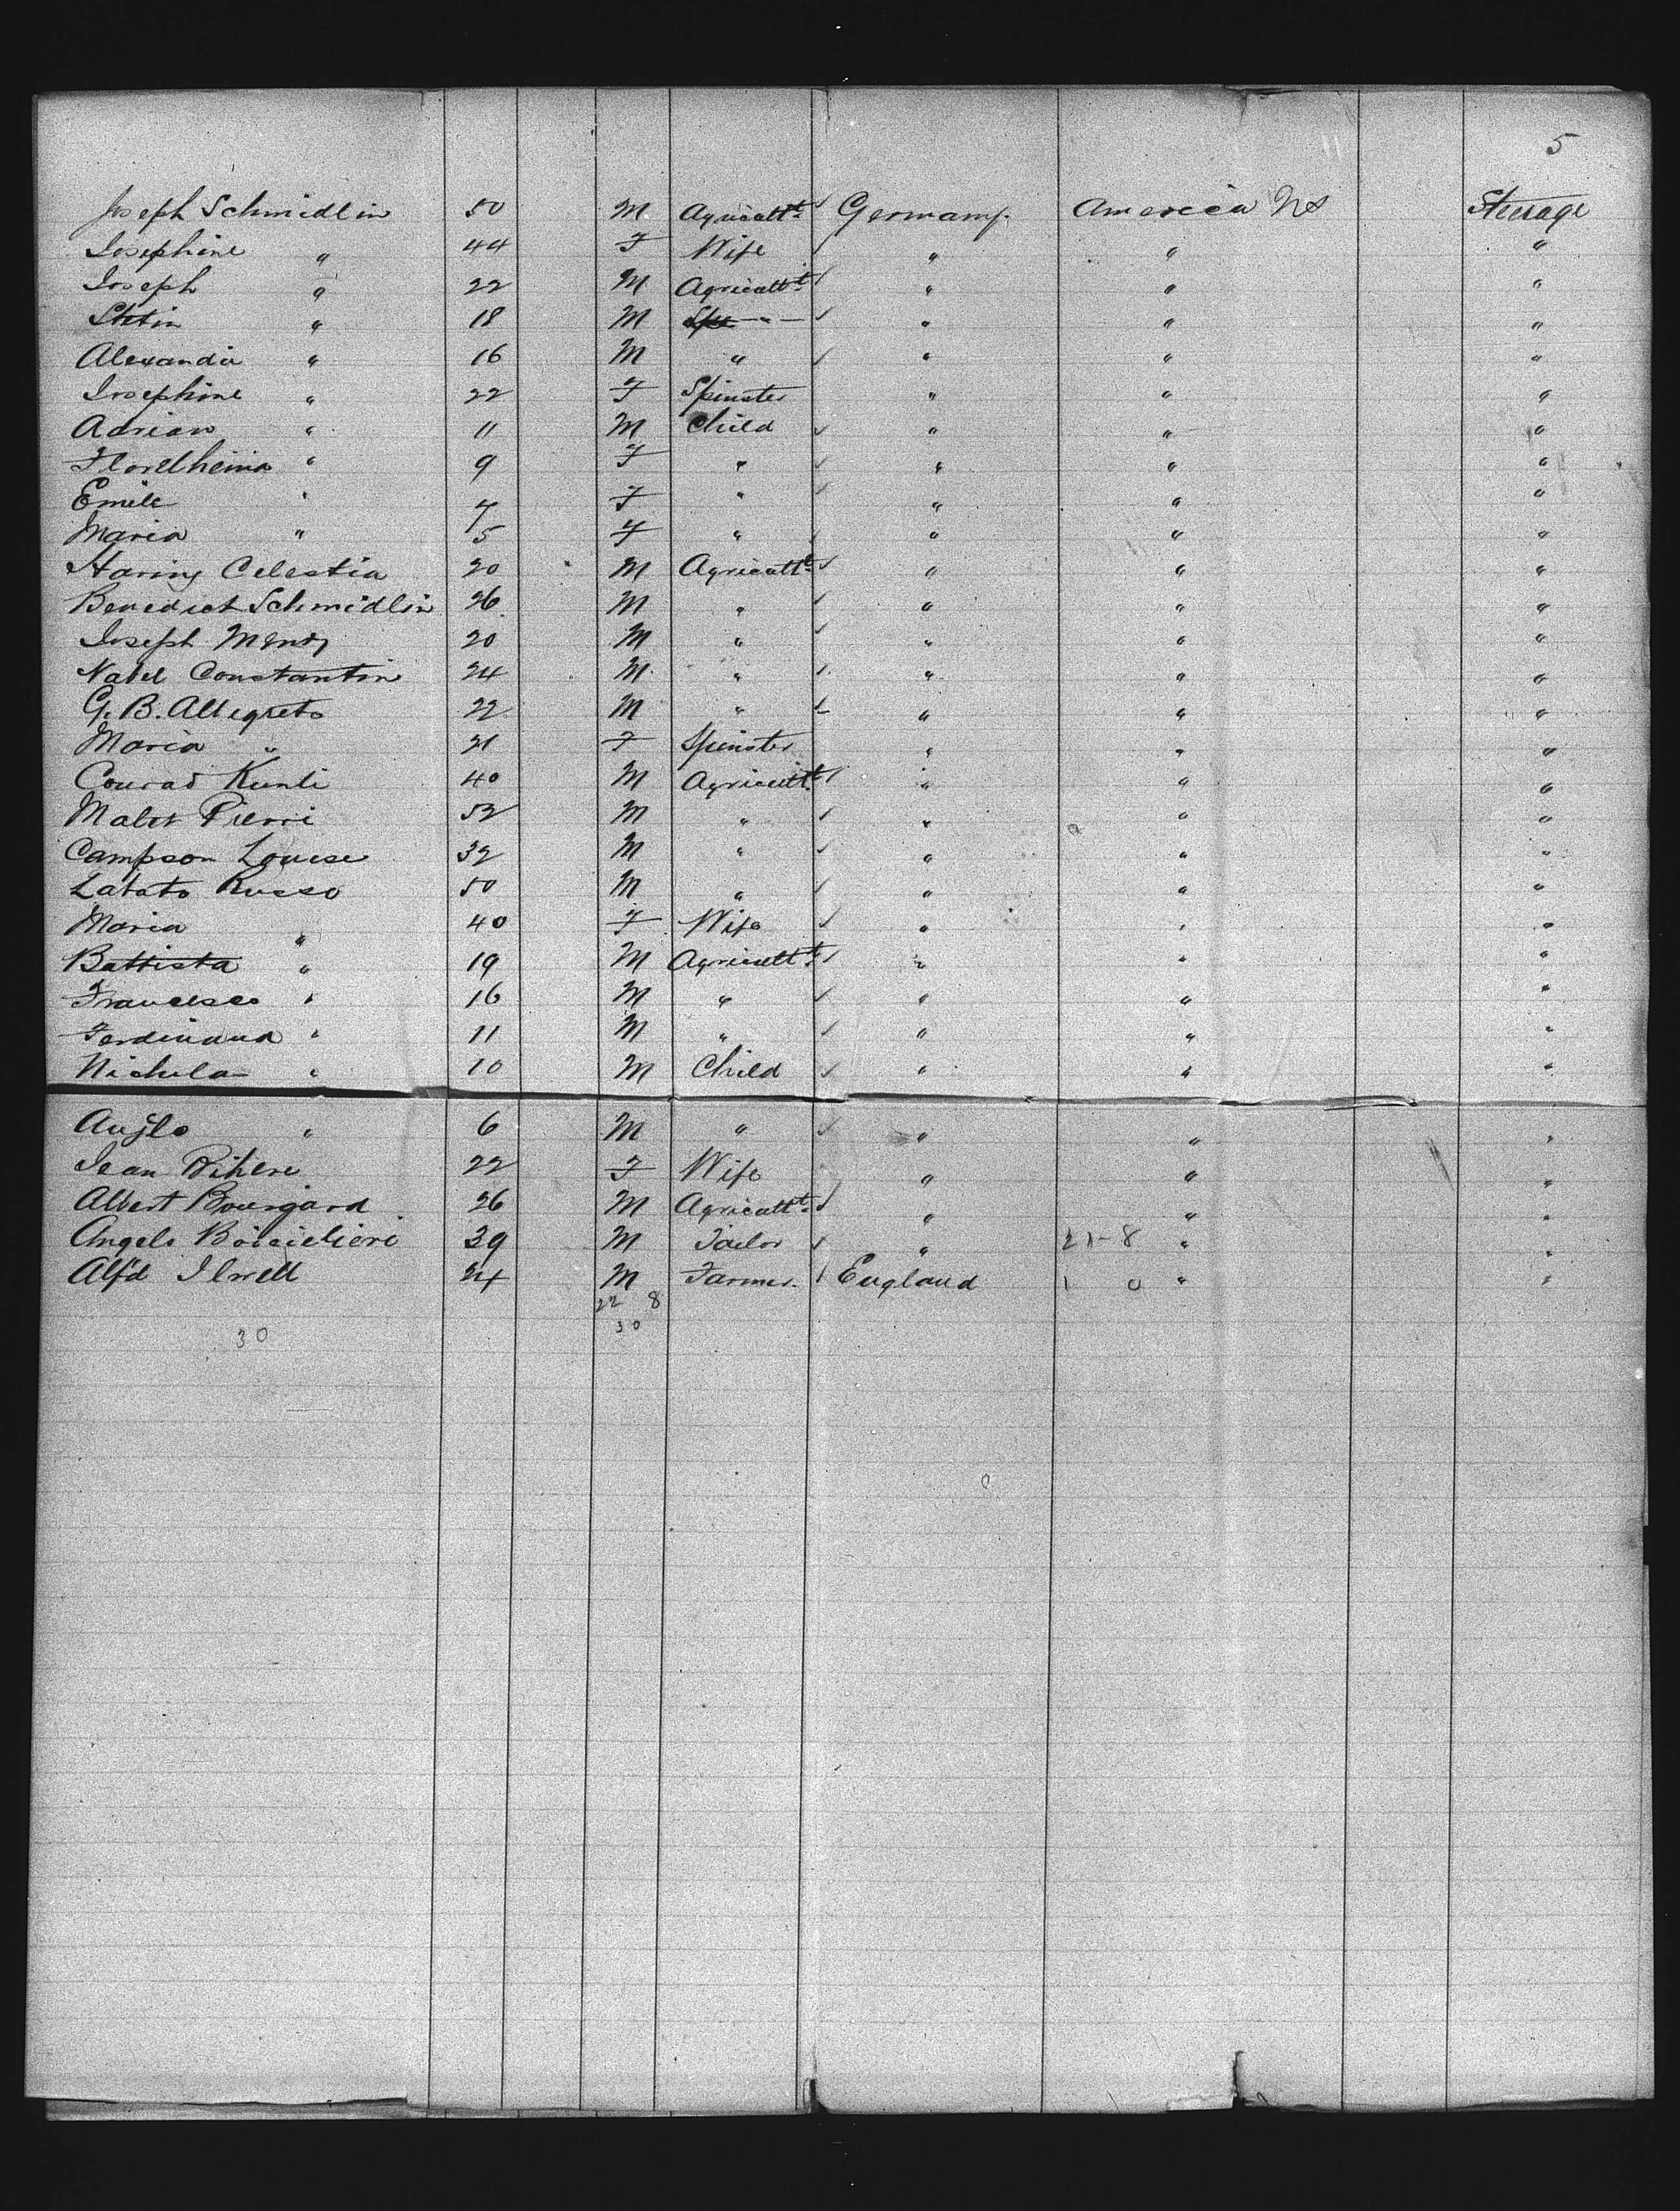 5
Joseph Schmidlin 50 M Agricultt Germany. America US Steerage
Josephine " 44 F Wife " " "
Joseph " 22 M Agricultt " " "
" 18 M " " " "
Alexandir " 16 M " " " "
Josephine " 22 F Spinster " " "
Adrian " 11 M Child " " "
" 9 F " " " "
Emile " 7 F " " " "
Maria " 5 F " " " "
Haring Celestia 20 M Agricultt " " "
Benedict Schmidlin 26 M " " " "
Joseph 20 M " " " "
Natel Constantin 24 M " " " "
G. B. Allegreto 22 M " " " "
Maria " 21 F Spinster " " "
Conrad Kunli 40 M Agricultt " " "
Malet Pierri 52 M " " " "
Campson Louise 32 M " " " "
Labato Russo 50 M " " " "
Maria " 40 F Wife " " "
Battista " 19 M Agricultt " " "
Francesco " 16 M " " " "
Ferdinand " 11 M " " " "
Nichola " 10 M Child " " "
Anjlo " 6 M " " " "
Jean 22 F Wife " " "
Albert Bourgard 26 M Agricultt " " "
Angelo 39 M Tailor " 21-8 " "
Alfd 24 M Farmer. England 1 0 " "
22 8
30 30